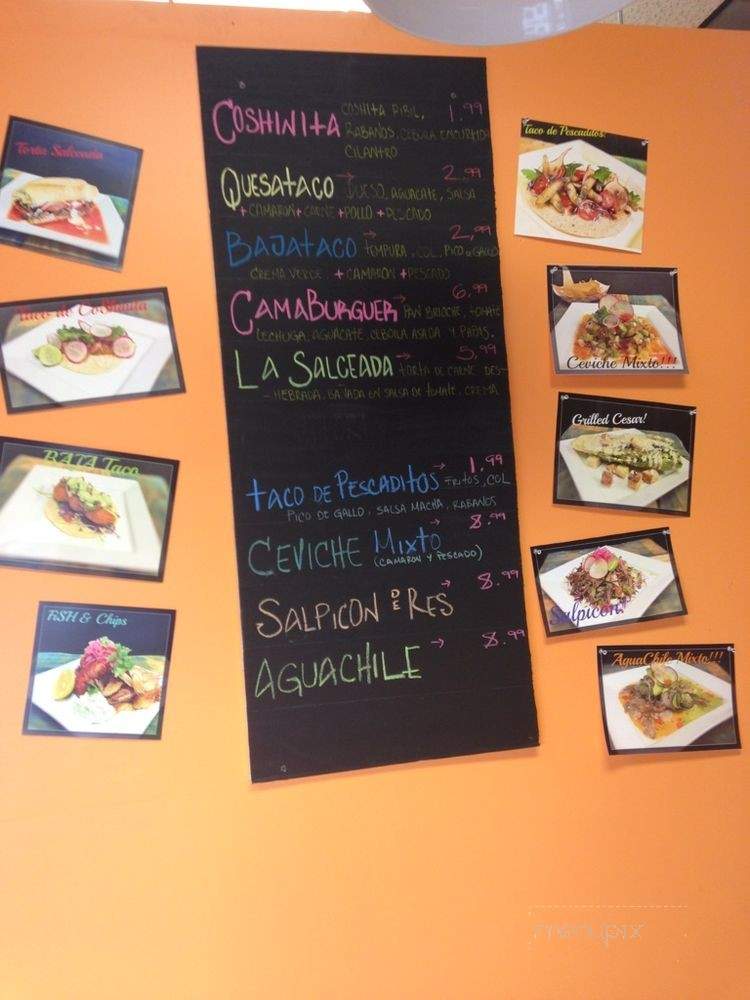 COSHINITA COSHITA PIBIL, 1.99
RABANOS, CEBOLA ENCURTIDA
CILANTRO
QUESATACO → QUESO, AGUACATE, SALSA 2.99
+ CAMARON + CARNE + POLLO + PESCADO
BAJATACO → TEMPURA, COL, PICO DE GALLO 2,99
CREMA VERDE, + CAMARON + PESCADO
CAMABURGUER → PAN BRIOCHE, TOMATE 6.99
LECHUGA, AGUACATE, CEBOLLA ASADA Y PAPAS.
LA SALCEADA → TORTA DE CARNE DES- 5,99
- HEBRADA, BAÑADA EN SALSA DE TOMATE, CREMA
TACO DE PESCADITOS → FRITOS, COL 1.99
PICO DE GALLO, SALSA MACHA, RABANOS
CEVICHE MIXTO → 8.99
(CAMARON Y PESCADO)
SALPICON DE RES → 8.99
AGUACHILE → 8.99
Torta Salceada
Taco de CoShinita
BAJA Taco
FiSH & Chips
Taco de Pescaditos!
Ceviche Mixto!!!
Grilled Cesar!
Salpicon!
AguaChile Mixto!!!
menupix